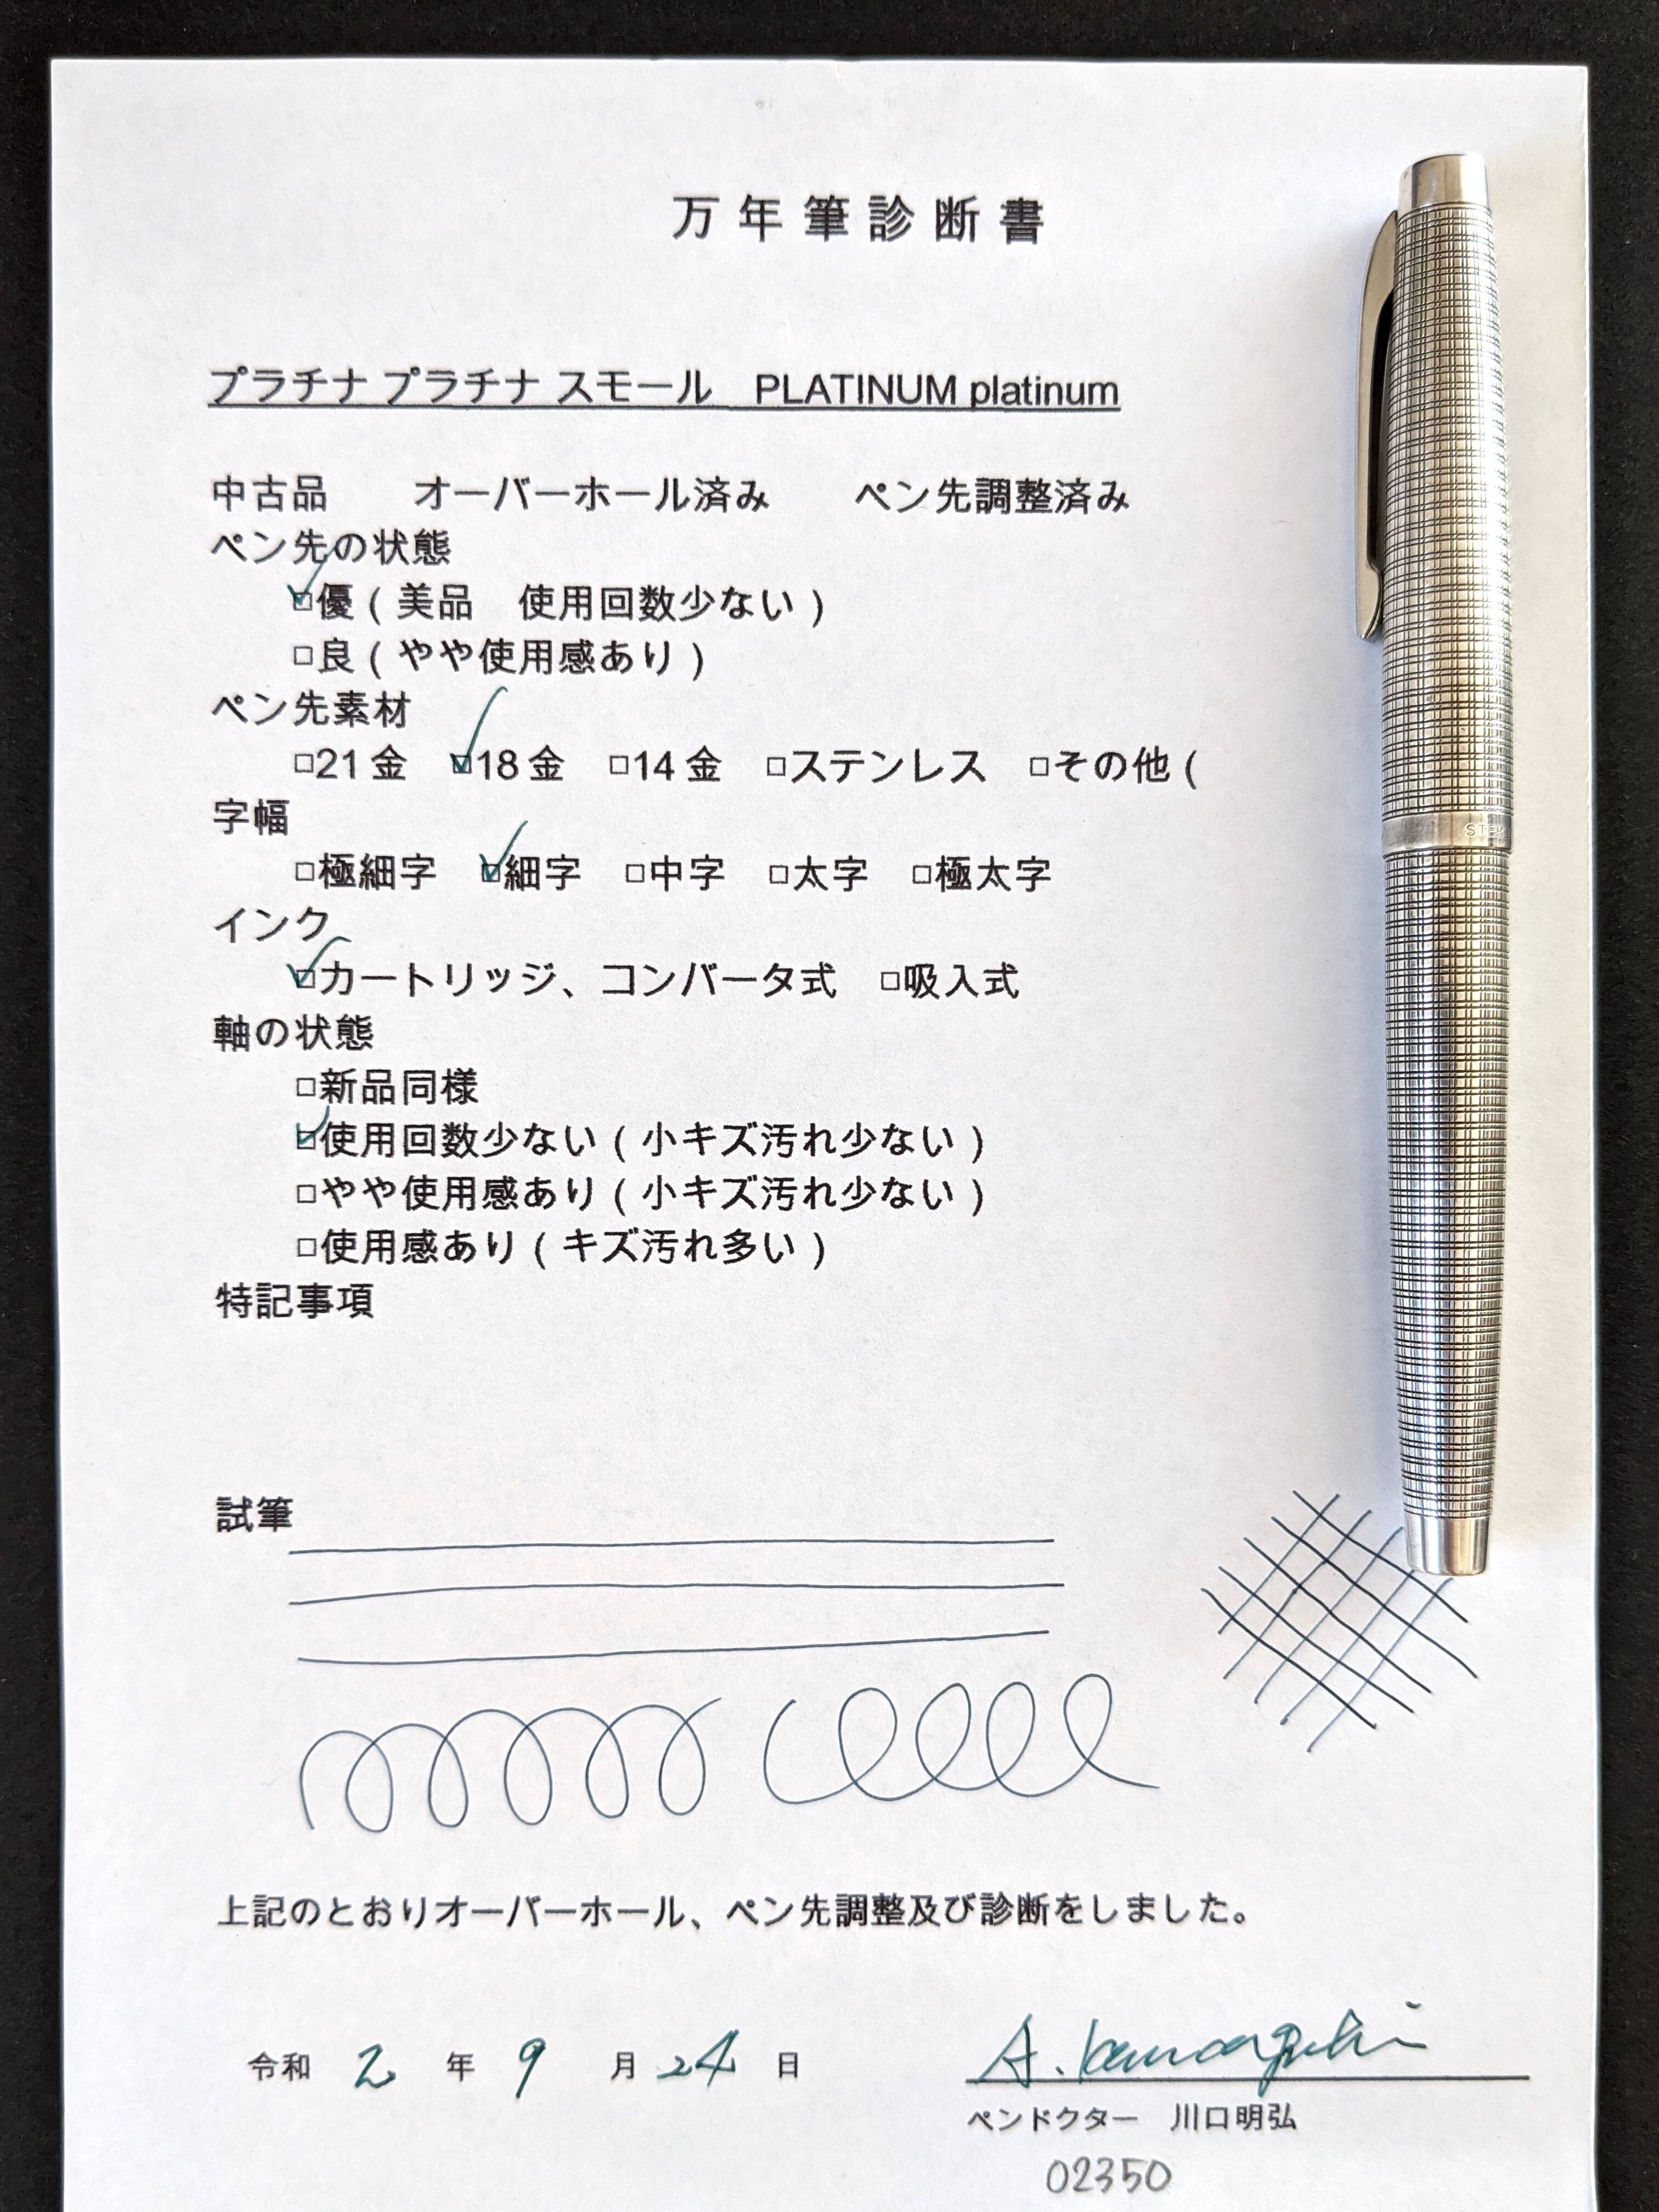 万年筆診断書
プラチナ プラチナ スモール　PLATINUM platinum
中古品　　オーバーホール済み　　ペン先調整済み
ペン先の状態
☑優（美品　使用回数少ない）
□良（やや使用感あり）
ペン先素材
□21金　☑18金　□14金　□ステンレス　□その他（
字幅
□極細字　☑細字　□中字　□太字　□極太字
インク
☑カートリッジ、コンバータ式　□吸入式
軸の状態
□新品同様
☑使用回数少ない（小キズ汚れ少ない）
□やや使用感あり（小キズ汚れ少ない）
□使用感あり（キズ汚れ多い）
特記事項
試筆
上記のとおりオーバーホール、ペン先調整及び診断をしました。
令和 2 年 9 月 24 日
A. Kawaguchi
ペンドクター　川口明弘
02350